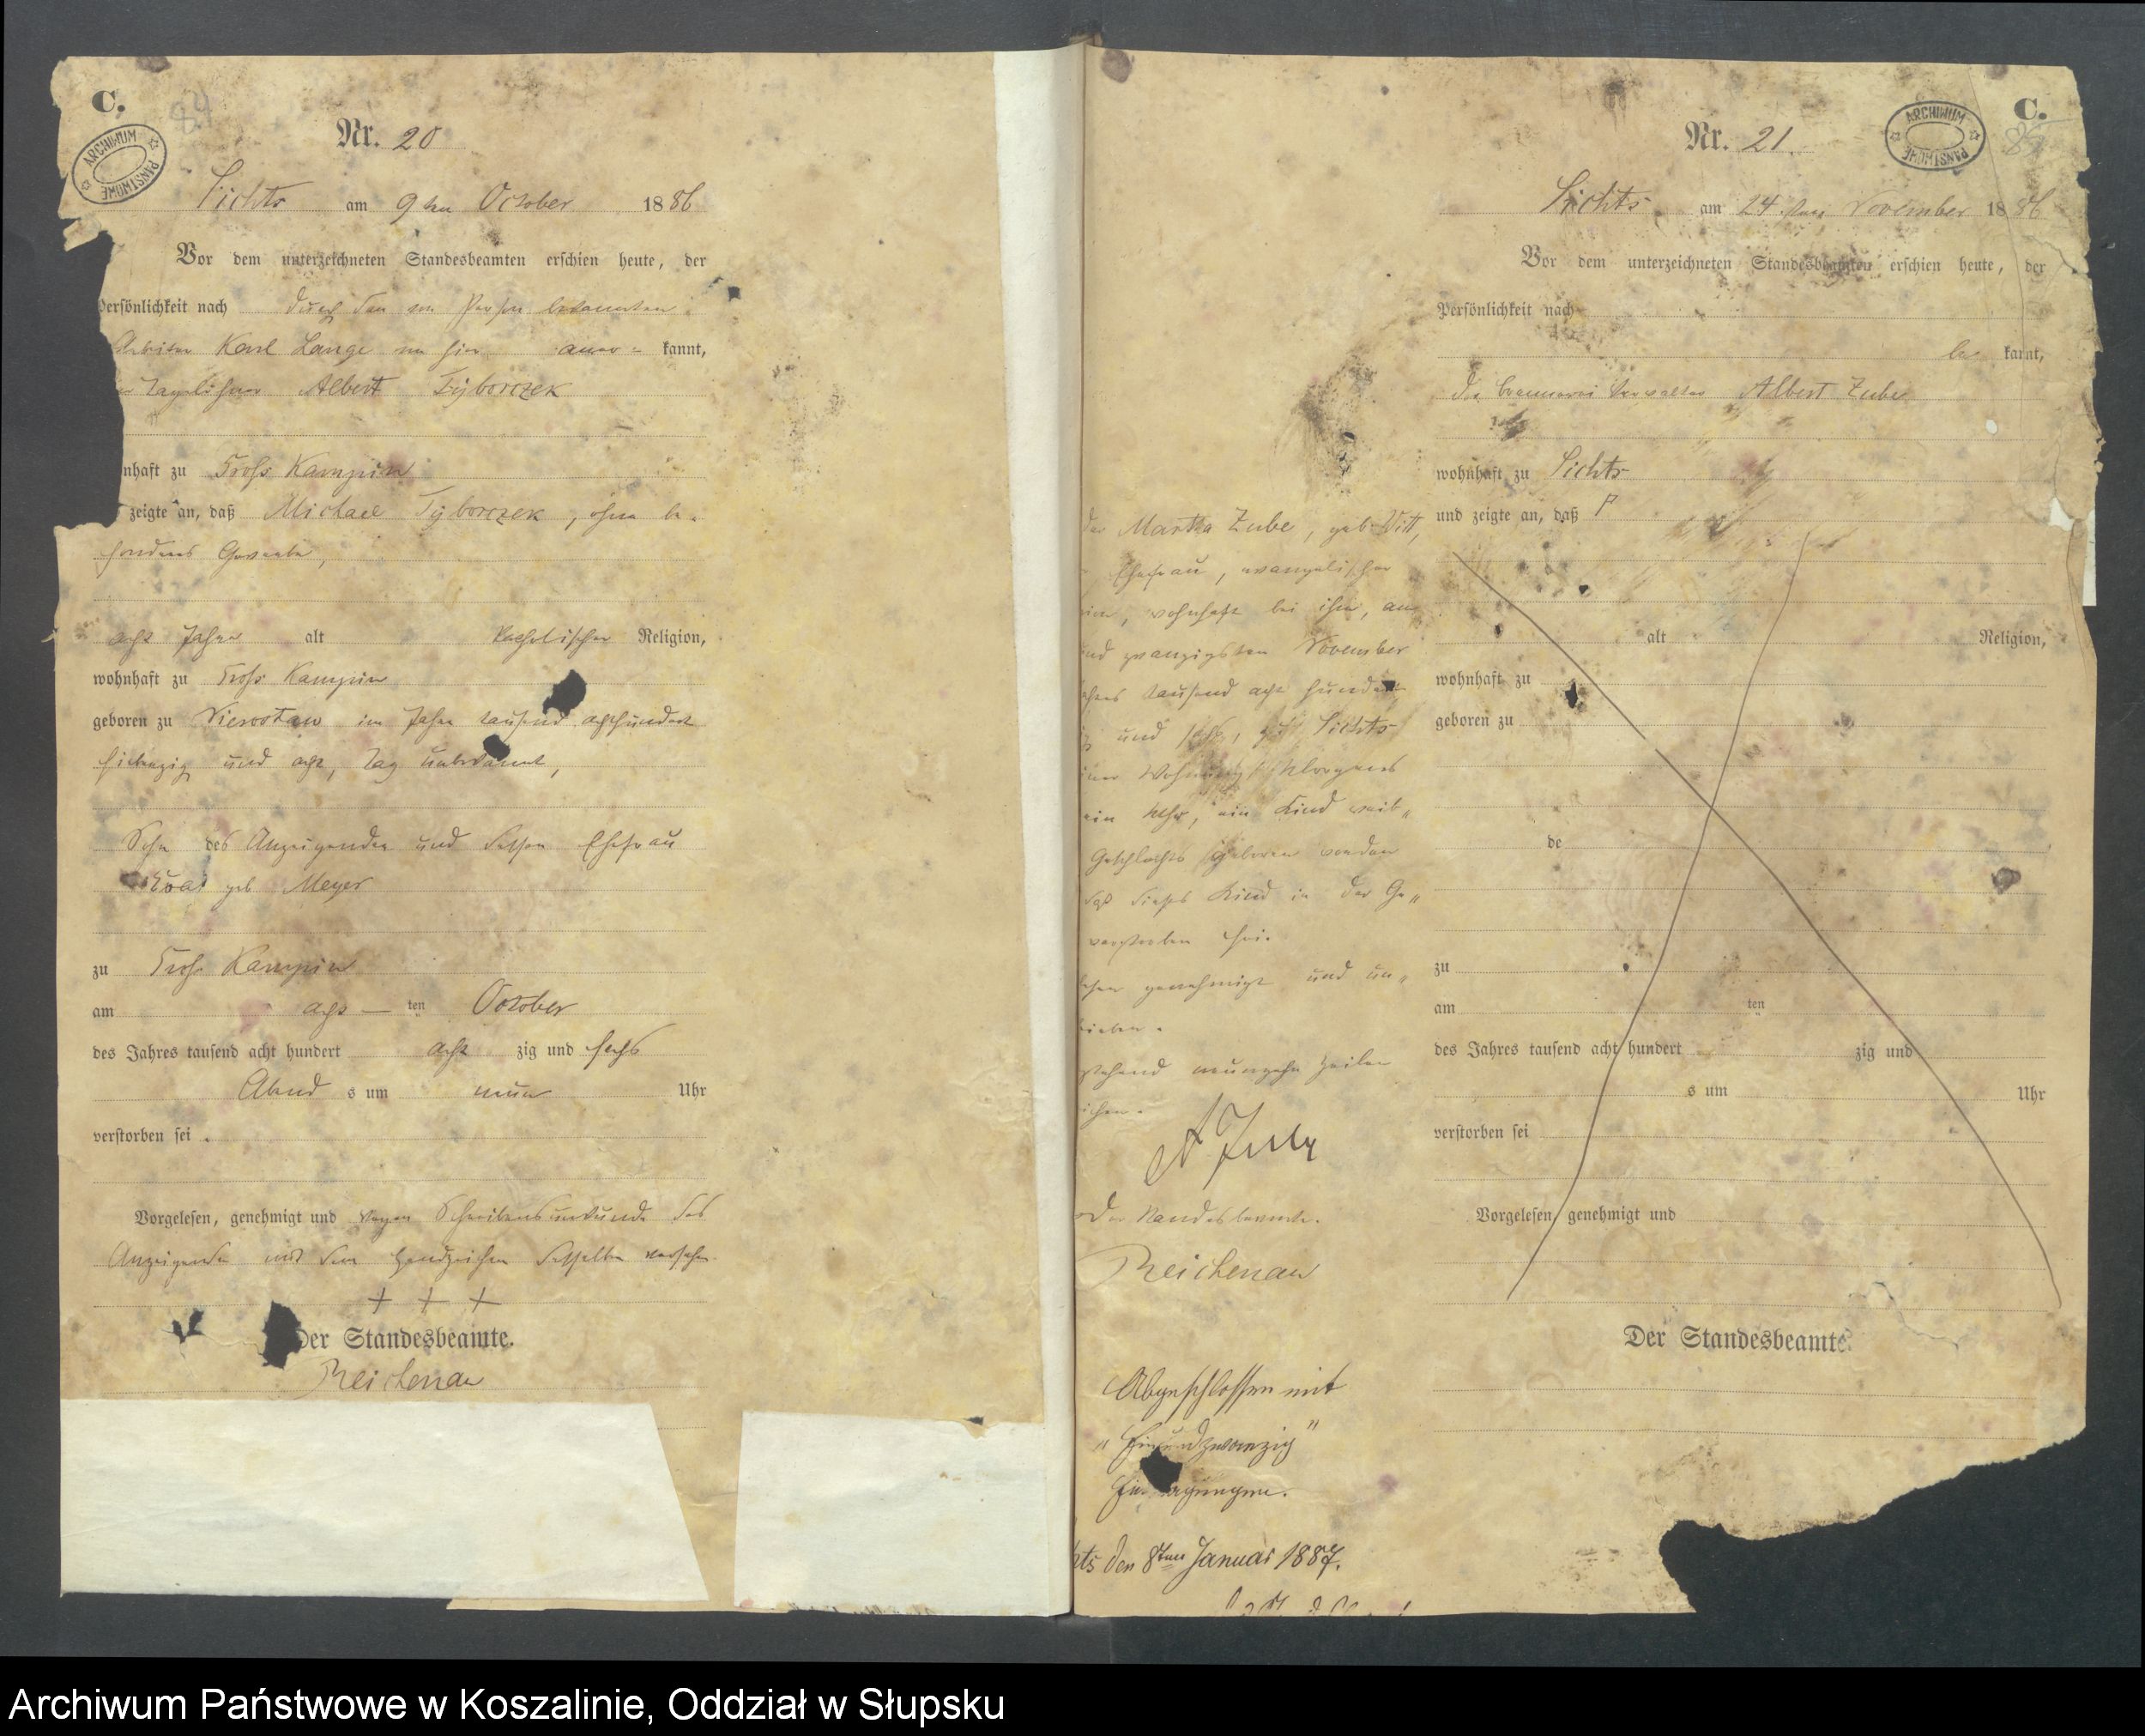 C.
84
ARCHIWUM PAŃSTWOWE
Nr. 20
Sichts am 9ten October 1886
Vor dem unterzeichneten Standesbeamten erschien heute, der
Persönlichkeit nach durch den von Person bekannten
Arbeiter Karl Lange von hier aner= kannt,
Tagelöhner Albert Tyborczek
nhaft zu Groß Kampin
zeigte an, daß Michael Tyborczek, ohne be=
sonderes Gewerbe,
acht Jahre alt katholischer Religion,
wohnhaft zu Groß Kampin
geboren zu im Jahre tausend achthundert
siebenzig und acht, Tag unbekannt,
Sohn des Anzeigenden und dessen Ehefrau
geb Meyer
zu Groß Kampin
am acht — ten October
des Jahres tausend acht hundert acht zig und sechs
Abend s um neun Uhr
verstorben sei.
Vorgelesen, genehmigt und wegen Schreibensunkunde des
Anzeigenden mit dem Handzeichen desselben versehen.
+ + +
Der Standesbeamte.
Reichenau
C.
ARCHIWUM PAŃSTWOWE
Nr. 21.
Sichts am 24ten November 1886
Vor dem unterzeichneten Standesbeamten erschien heute, der
Persönlichkeit nach
be kannt,
der Brennerei Verwalter Albert Zube
wohnhaft zu Sichts
und zeigte an, daß
alt Religion,
wohnhaft zu
geboren zu
de
zu
am ten
des Jahres tausend acht hundert zig und
s um Uhr
verstorben sei
Vorgelesen, genehmigt und
Der Standesbeamte
der Martha Zube, geb. Witt,
Ehefrau, evangelischer
ion, wohnhaft bei ihm, am
nd zwanzigsten November
hres tausend acht hundert
und sechs, zu Sichts
iner Wohnung Morgens
ein Uhr, ein Kind weib„
Geschlechts geboren worden
daß dieses Kind in der Ge„
verstorben sei.
esen genehmigt und un„
rieben.
stehend neunzehn Zeilen
ichen.
A Zube
Der Standesbeamte.
Reichenau
Abgeschlossen mit
„Einundzwanzig"
Ein agungen.
hts den 8ten Januar 1887.
Archiwum Państwowe w Koszalinie, Oddział w Słupsku